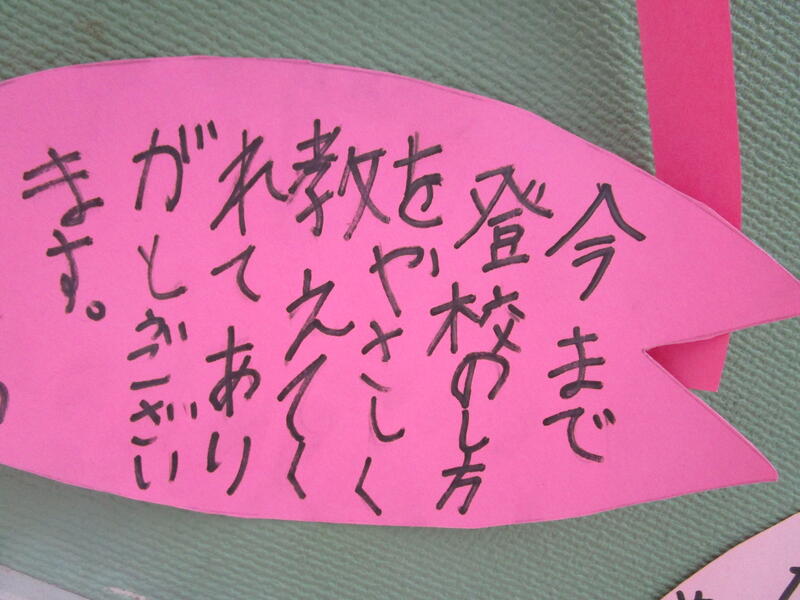 今まで
登校のし方
をやさしく
教えてく
れてあり
がとございい
ます。